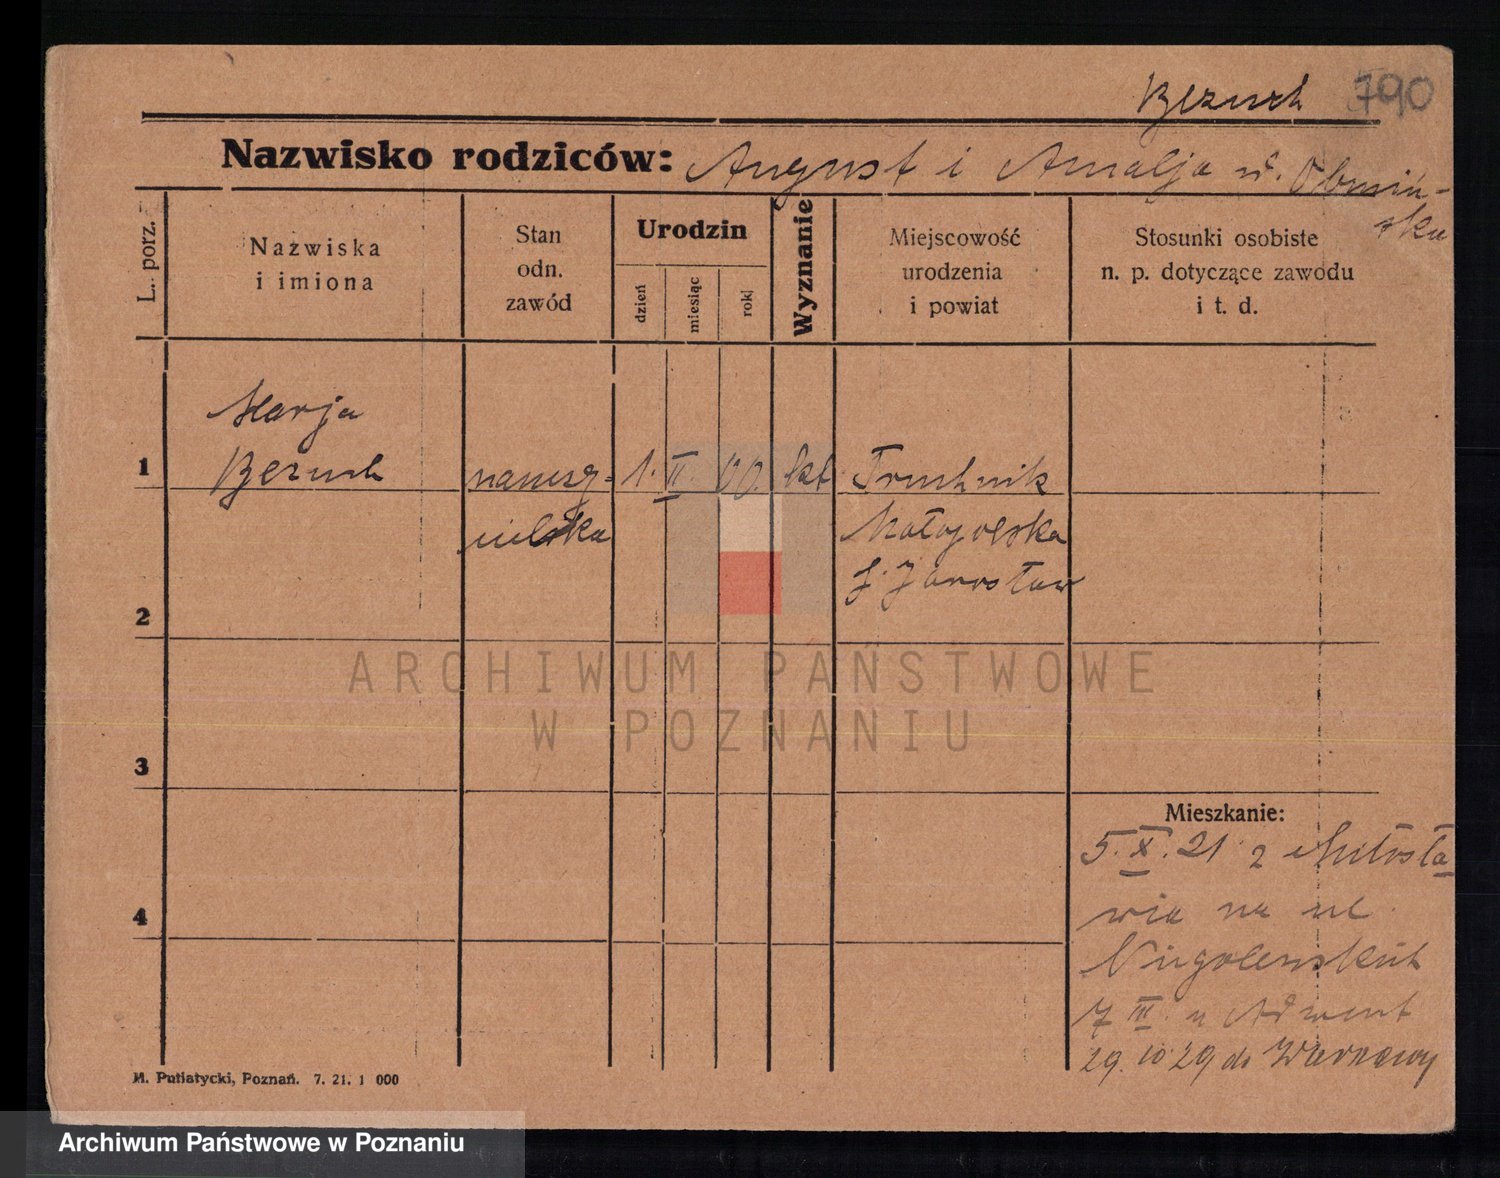 Bezuch 790
Nazwisko rodziców: August i Amalja u. Obmiń-
ska
L. porz.
Nazwiska
i imiona
Stan
odn.
zawód
Urodzin
dzień
miesiąc
rok
Wyznanie
Miejscowość
urodzenia
i powiat
Stosunki osobiste
n. p. dotyczące zawodu
i t. d.
Marja
1 Bezuch nauczy- 1. II. 00. kat
cielka
Małopolska
Jarosław
2
3
4
Mieszkanie:
5. X. 21 z Miłosła
wia na ul.
7 III u Adwent
29. 10 29 do Warszawy
M. Putiatycki, Poznań. 7. 21. 1 000
ARCHIWUM PAŃSTWOWE
W POZNANIU
Archiwum Państwowe w Poznaniu